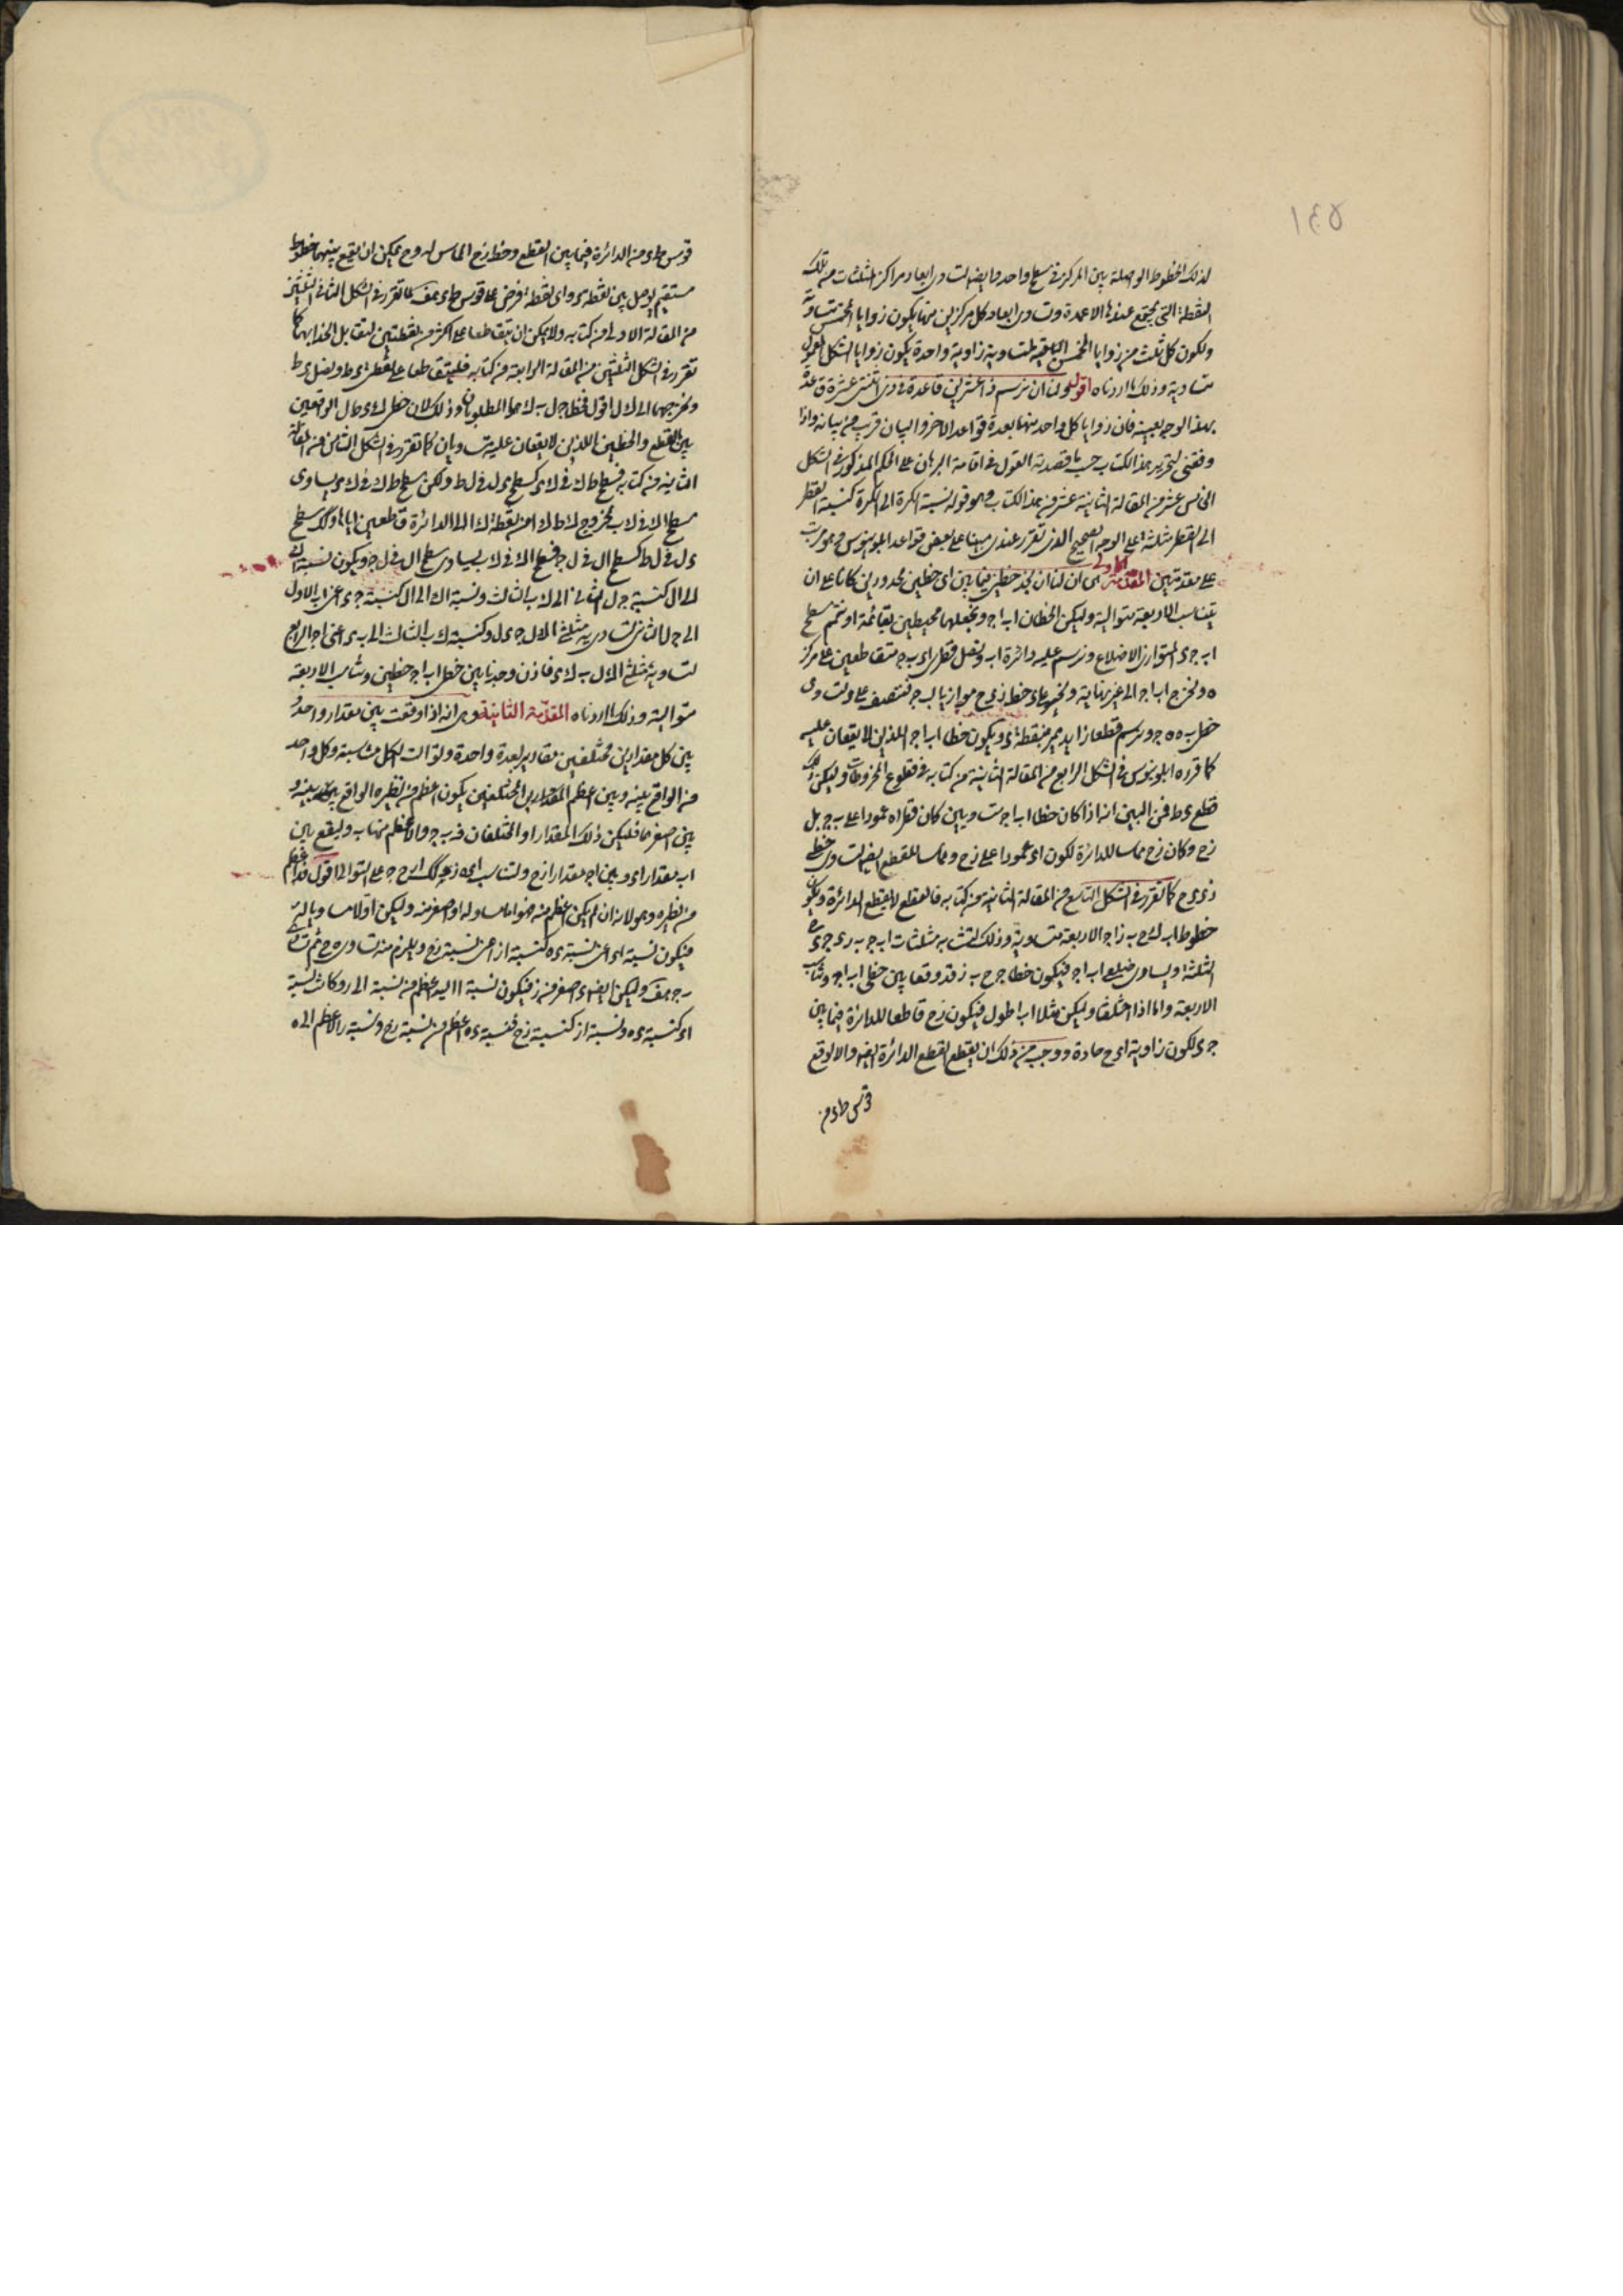 ١٤٥
لذلك الخطوط الواصلة بين المركز في سطح واحد وايضا لتساوى ابعاد مراكز المثلثات من تلك
النقطة التى يجتمع عندها الاعمدة وتساوى ابعاد كل مركزين منها يكون زوايا المخمس متساوية
ولكون كل ثلث من زوايا المخمس الباقية المتساوية زاوية واحدة يكون زوايا الشكل
متساوية وذلك ما اردناه اقول ولنا ان نرسم ذا عشرين قاعدة في ذى اثنتى عشرة قاعدة
بهذا الوجه بعينه فان زوايا كل واحد منهما بعدة قواعد الاخر والبيان قريب من بيانه واذا
وفقنى لتحرير هذا الكتاب حسب ما قصدته القول في اقامة البرهان على الحكم المذكور في الشكل
الخامس عشر من المقالة الثانية عشر من هذا الكتاب وهو قوله نسبة الكرة الى الكرة كنسبة القطر
الى القطر مثلثة على الوجه الصحيح الذى تقرر عندى مبينا على بعض قواعد ابلونيوس وهو مرتب
على مقدمتين المقدمة الاولى هى ان لنا ان نجد خطين فيما بين اى خطين محدودين كانا على ان
يتناسب الاربعة متوالية وليكن الخطان اب اج ونجعلهما محيطين بقائمة او نتمم سطح
اب جى المتوازى الاضلاع ونرسم عليه دائرة اب ونصل قطرى اى ب ج متقاطعين على مركز
ه ونخرج اب اج الى غير نهاية ونخرج على خط زى ح موازيا لب ج فتنصف على وتساوى
خطى ب ه ه ج ونرسم قطعا زايد يمر بنقطة ى ويكون خطا اب اج اللذين لا يقعان عليه
كما قرره ابلونيوس في الشكل الرابع من المقالة الثانية من كتابه في قطوع المخروطات وليكن ذلك
قطع ى ط فمن البين انه اذا كان خطا اب اج متساويين كان قطر اه عمودا على ب ج بل
زح وكان زح مماسا للدائرة لكون اى عمودا على زح ومماسا للقطع ايضا لتساوى خطى
زى ى ح كما تقرر في الشكل التاسع من المقالة الثانية من كتابه فالقطع لا يقطع الدائرة ويكون
خطوط اب ح ب ز اج الاربعة متساوية وذلك لتشابه مثلثات اب ج ب ز ى ج ى ح
الثلثة ويساوى ضلعى اب اج فيكون خطا ج ح ب ز قد وقعا بين خطى اب اج وتناسب
الاربعة واما اذا اختلفا وليكن مثلا اب اطول فيكون زح قاطعا للدائرة فيما بين
جى لكون زاوية اى ح حادة ووجب من ذلك ان يقطع القطع الدائرة ايضا والا لوقع
قوس ط ى من
قوس ط ى من الدائرة فيما بين القطع وخط زح المماس له وح يمكن ان يقع بينهما خطوط
مستقيم يوصل بين نقطة ى واى نقطة تفرض على قوس ط ى هف لما تقرر في الشكل الثانى الثلثين
من المقالة الاولى من كتابه ولا يمكن ان يتقاطعا على اكثر من نقطتين لتقابل انحدابهما كما
تقرر في الشكل الثلثين من المقالة الرابعة من كتابه فليتقاطعا على نقطتى ى ط ونصل ى ط
ونخرجهما الى ك ل اقول فخطا ج ل ب ك هما المطلوبان وذلك لان خطى ك ى ط ل الواقعين
بين القطع والخطين اللذين لا يقعان عليه متساويان كما تقرر في الشكل الثامن من المقالة
الثانية من كتابه فسطح ط ك في ك ى كسطح ى ل في ل ط ولكن سطح ط ك في ك ى يساوى
سطح اك في ك ب لخروج ك ط ك ا من نقطة ك الى الدائرة قاطعين اياها وكذلك سطح
ى ل في ل ط كسطح ال في ل ج فسطح اك في ك ب يساوى سطح ال في ل ج ويكون نسبة اك
الى ال كنسبة ج ل الثانى الى ك ب الثالث ونسبة اك الى ال كنسبة جى اعنى اب الاول
الى ج ل الثانى لتساويه مثلثى اك ل ج ى ل وكنسبة ك ب الثالث الى ب ى اعنى اج الرابع
لتساويه مثلثى اك ل ب ك ى فاذن وجدنا بين خطى اب اج خطين وتناسب الاربعة
متوالية وذلك ما اردناه المقدمة الثانية وهى انه اذا وقعت بين مقدار واحد و
بين كل مقدارين مختلفين مقادير بعدة واحدة وتوالت الكل متناسبة وكل واحد
من الواقع بينه وبين اعظم المقدارين المختلفين يكون اعظم من نظيره الواقع بينه و
بين اصغرهما فليكن ذلك المقدار ا والمختلفان ب ج والاعظم منهما ب وليقع بين
اب مقدارا ى ه وبين اج مقدارا ز ح ولتناسب ا ى ه ب وكذلك ا ز ح ج على التوالى اقول ف ى اعظم
من نظيره وهو ز لانه ان لم يكن اعظم منه فهو اما مساو له او اصغر منه وليكن اولا مساويا له
فيكون نسبة اى اعنى نسبة ى ه كنسبة از اعنى نسبة زح ويلزم منه تساوى ه ح ثم تساوى
ب ج هف وليكن ايضا ى اصغر من ز فيكون نسبة ا اليه اعظم من نسبة ا الى ز وكانت نسبة
اى كنسبة ى ه ونسبة از كنسبة زح فنسبة ى ه اعظم من نسبة زح ونسبة ز الاعظم الى ه